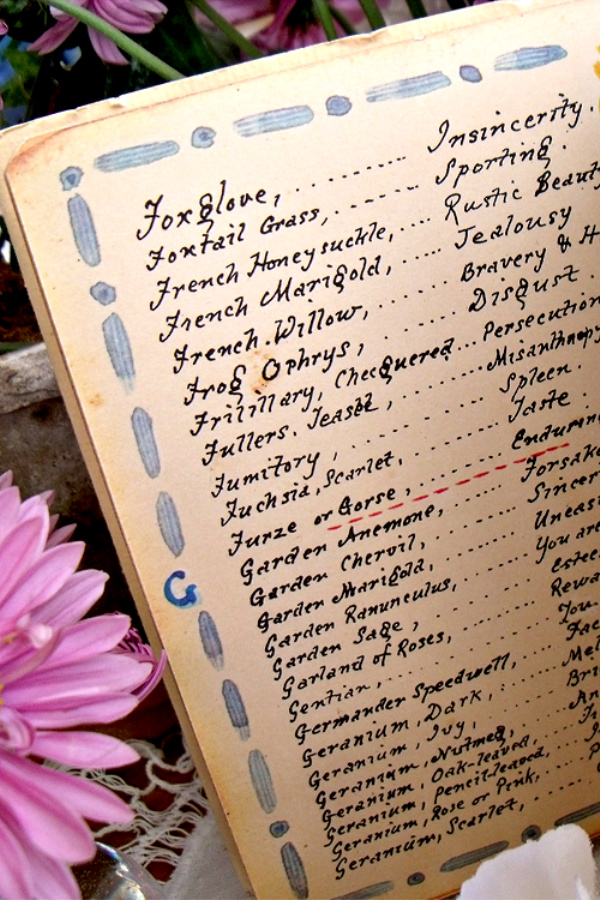 Foxglove, ........ Insincerity.
Foxtail Grass, ....... Sporting.
French Honeysuckle, .... Rustic Beauty
French Marigold, .... Jealousy
French Willow, ...... Bravery & H
Frog Ophrys, ....... Disgust.
Fritillary, Checquered... Persecution
Fullers. Teasel, ....... Misanthropy
Fumitory, ........ Spleen.
Fuchsia, Scarlet, ....... Taste.
Furze or Gorse, ........ Enduring
Garden Anemone, ...... Forsake
Garden Chervil, ....... Sincer
Garden Marigold, ....... Uneasi
Garden Ranunculus, ...... You are
Garden Sage, ....... Estee
Garland of Roses, ...... Rewa
G
Gentian, ........ You
Germander Speedwell, ..... Fac
Geranium, Dark, ...... Mel
Geranium, Ivy, ...... Bri
Geranium, Nutmeg, ..... An
Geranium, Oak-leaved,
Geranium, Pencil-leaved,
Geranium, Rose or Pink,
Geranium, Scarlet, .....